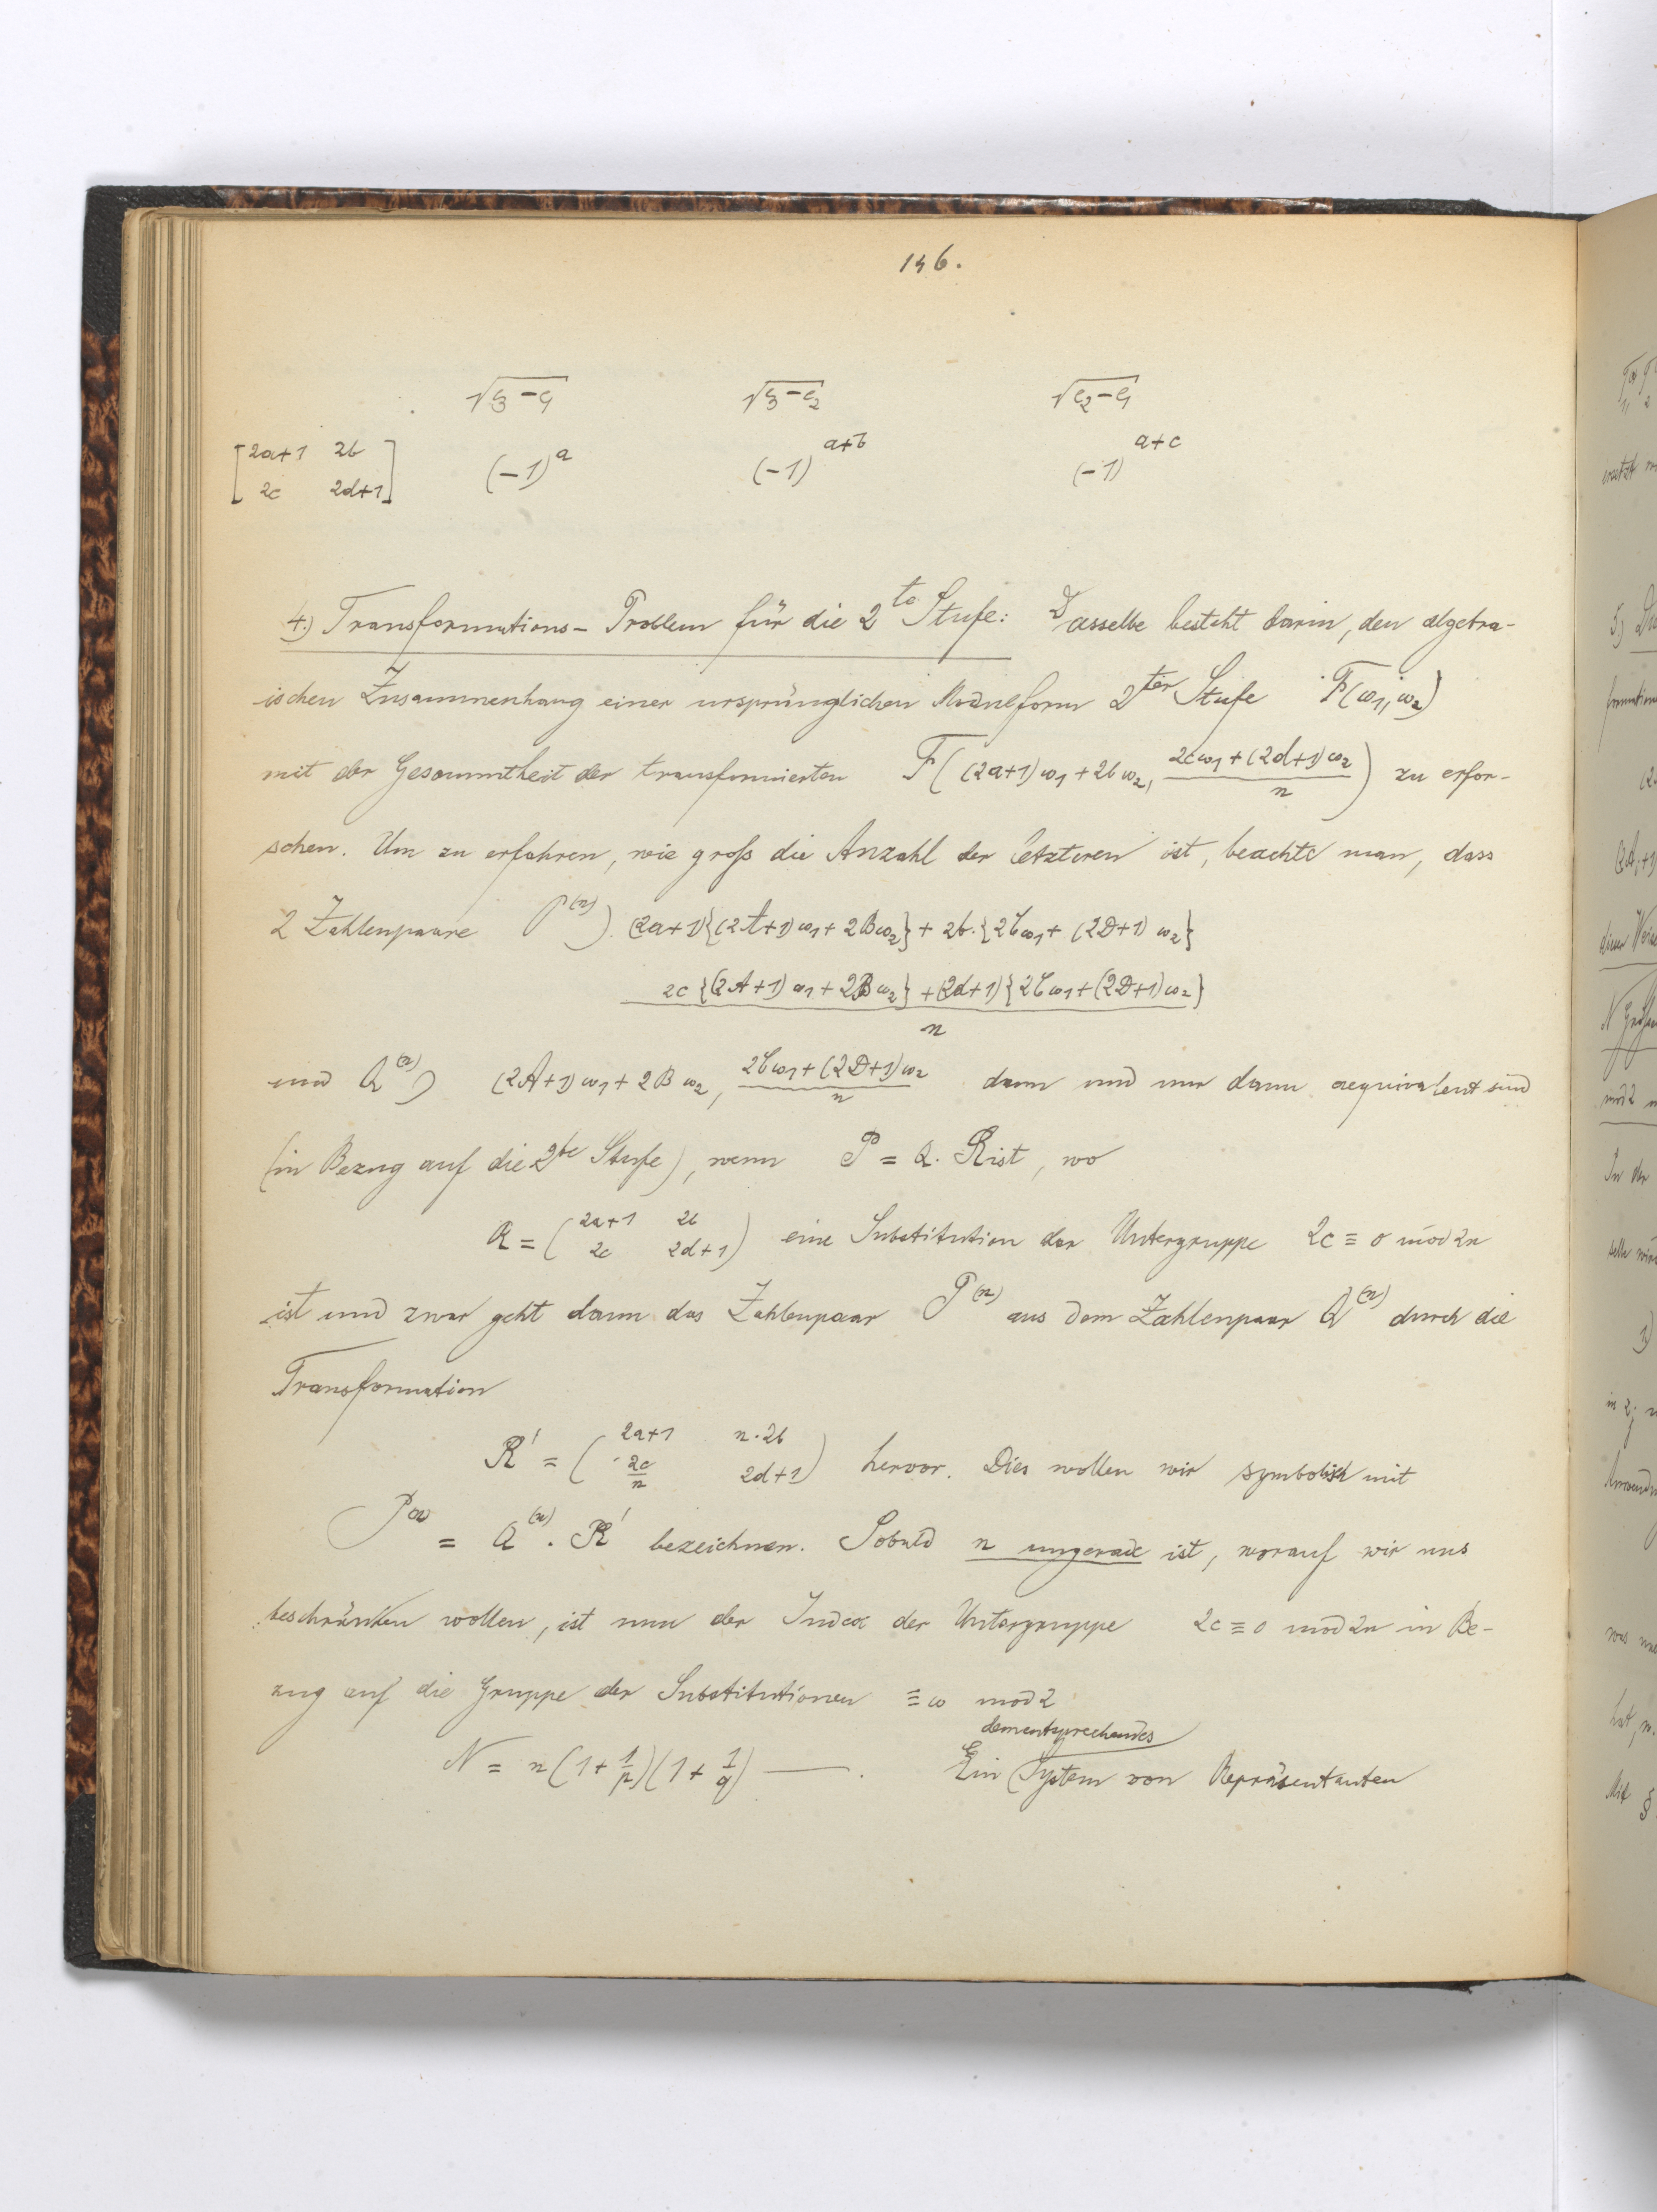 146.
√e₃-e₁ √e₃-e₂ √e₂-e₁
[2a+1 2b (-1)^a (-1)^{a+b} (-1)^{a+c}
2c 2d+1]
4.) Transformations-Problem für die 2te Stufe: Dasselbe besteht darin, den algebra-
ischen Zusammenhang einer ursprünglichen Modulform 2ter Stufe F(ω₁, ω₂)
mit der Gesammtheit der transformierten F((2a+1)ω₁+2bω₂, (2cω₁+(2d+1)ω₂)/n) zu erfor-
schen. Um zu erfahren, wie groß die Anzahl der letzteren ist, beachte man, dass
2 Zahlenpaare P^(n)) (2a+1){(2A+1)ω₁+2Bω₂}+2b·{2Cω₁+(2D+1)ω₂}
2c{(2A+1)ω₁+2Bω₂}+(2d+1){2Cω₁+(2D+1)ω₂}
n
und Q^(n)) (2A+1)ω₁+2Bω₂, (2Cω₁+(2D+1)ω₂)/n dann und nur dann aequivalent sind
(in Bezug auf die 2te Stufe), wenn P = Q. R ist, wo
R = (2a+1 2b
2c 2d+1) eine Substitution der Untergruppe 2c ≡ 0 mod 2n
ist und zwar geht dann das Zahlenpaar P^(n) aus dem Zahlenpaar Q^(n) durch die
Transformation
R' = (2a+1 n·2b
2c/n 2d+1) hervor. Dies wollen wir symbolisch mit
P^(n) = Q^(n). R' bezeichnen. Sobald n ungerade ist, worauf wir uns
beschränken wollen, ist nun der Index der Untergruppe 2c ≡ 0 mod 2n in Be-
zug auf die Gruppe der Substitutionen ≡ ω mod 2
dementsprechendes
N = n(1+1/p)(1+1/q) —. Ein System von Repräsentanten